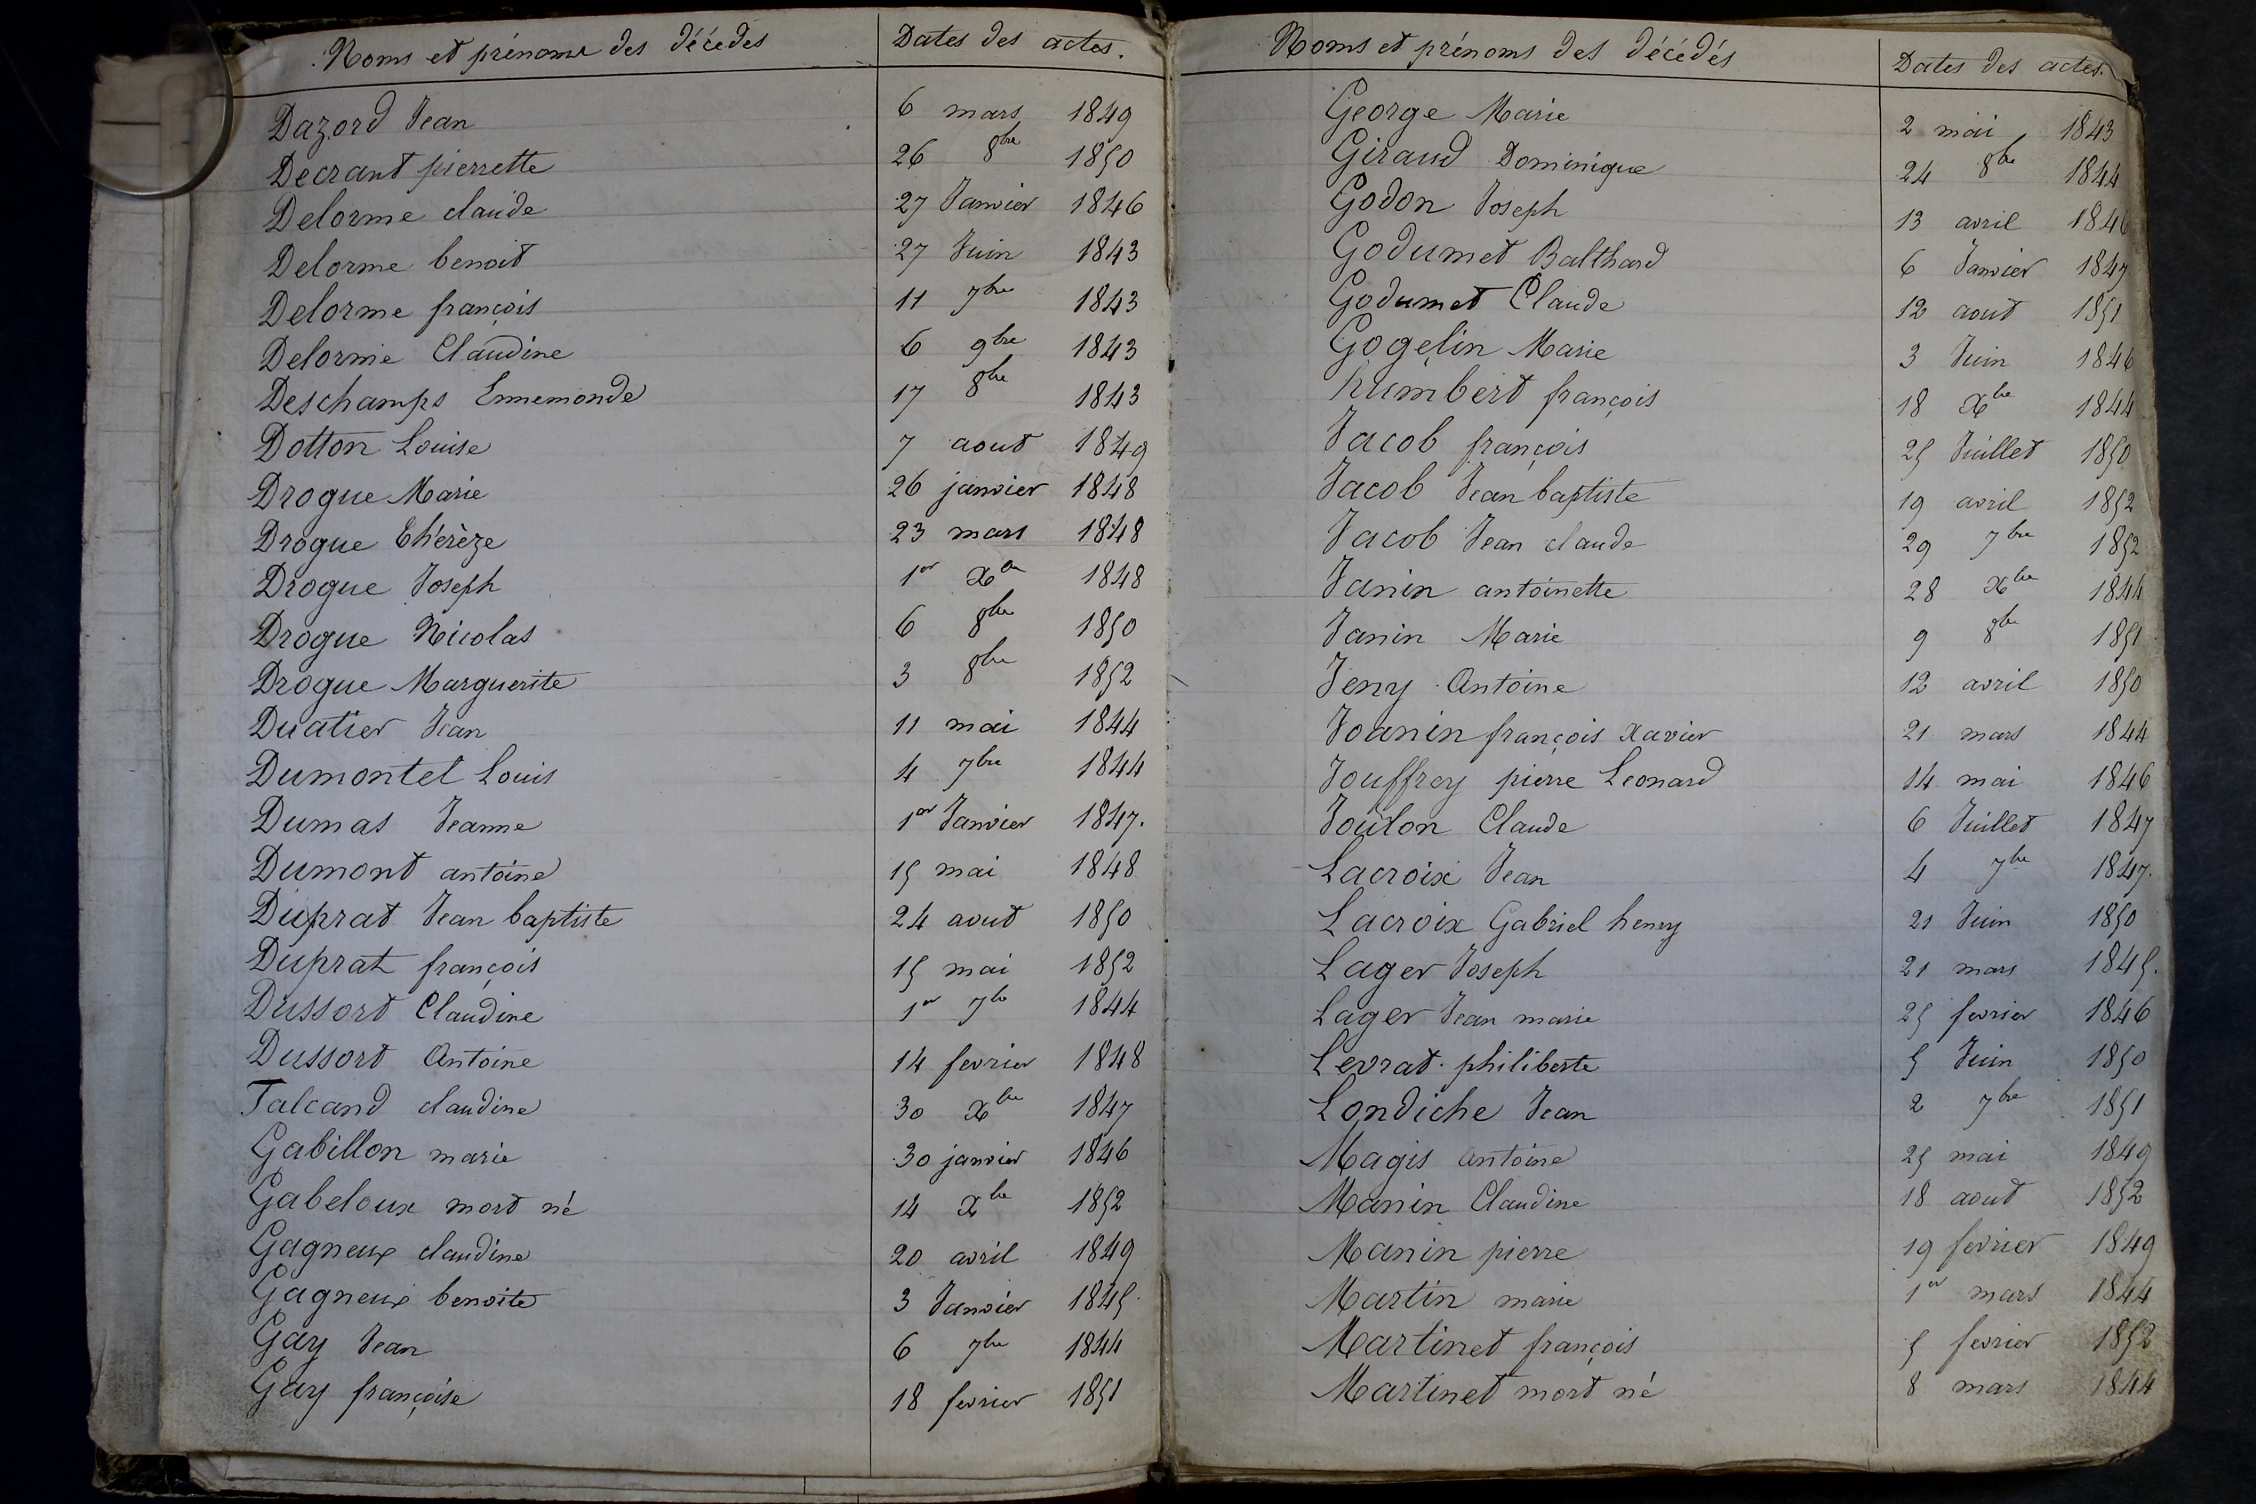 Noms et prénoms des décédés Dates des actes.
Dazord Jean 6 mars 1849
Decrant pierrette 26 8bre 1850
Delorme claude 27 Janvier 1846
Delorme benoit 27 Juin 1843
Delorme françois 11 7bre 1843
Delorme Claudine 6 9bre 1843
Deschamps Ennemonde 17 8bre 1843
Dotton Louise 7 aout 1849
Drogue Marie 26 janvier 1848
Drogue thérèze 23 mars 1848
Drogue Joseph 1er Xbre 1848
Drogue Nicolas 6 8bre 1850
Drogue Marguerite 3 8bre 1852
Duatier Jean 11 mai 1844
Dumontet Louis 4 7bre 1844
Dumas Jeanne 1er Janvier 1847.
Dumont antoine 15 mai 1848
Duprat Jean baptiste 24 aout 1850
Duprat françois 15 mai 1852
Dussort Claudine 1er 7bre 1844
Dussort Antoine 14 fevrier 1848
Falcand claudine 30 Xbre 1847
Gabillon marie 30 janvier 1846
Gabeloux mort né 14 Xbre 1852
Gagneux claudine 20 avril 1849
Gagneux benoite 3 Janvier 1845.
Gay Jean 6 7bre 1844
Gay françoise 18 fevrier 1851
Noms et prénoms des décédés Dates des actes.
George Marie 2 mai 1843
Giraud Dominique 24 8bre 1844
Godon Joseph 13 avril 1846
Godumet Balthard 6 Janvier 1847
Godumet Claude 12 aout 1851
Gogelin Marie 3 Juin 1846
humbert françois 18 Xbre 1844
Jacob françois 25 Juillet 1850
Jacob Jean baptiste 19 avril 1852
Jacob Jean claude 29 7bre 1852
Janin antoinette 28 Xbre 1844
Janin Marie 9 8bre 1851
Jeny Antoine 12 avril 1850
Joanin françois Xavier 21 mars 1844
Jouffrey pierre Leonard 14 mai 1846
Joulon Claude 6 Juillet 1847
Lacroix Jean 4 7bre 1847.
Lacroix Gabriel henry 21 Juin 1850
Lager Joseph 21 mars 1845.
Lager Jean marie 25 fevrier 1846
Levrat philiberte 5 Juin 1850
Londiche Jean 2 7bre 1851
Magis antoine 25 mai 1849
Manin Claudine 18 aout 1852
Manin pierre 19 fevrier 1849
Martin marie 1er mars 1844
Martinet françois 5 fevrier 1852
Martinet mort né 8 mars 1844